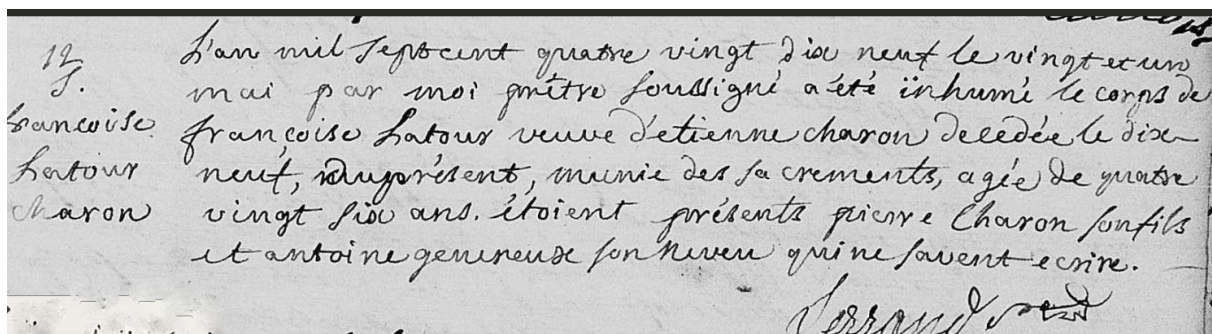 12
S.
françoise
Latour
charon
L'an mil sept cent quatre vingt dix neuf le vingt et un
mai par moi prêtre soussigné a été ïnhumé le corps de
françoise Latour veuve d'etienne charon decedée le dix
neuf, du présent, munie des sacrements, agée de quatre
vingt six ans. étoient présents pierre Charon son fils
et antoine genereux son neveu qui ne savent ecrire.